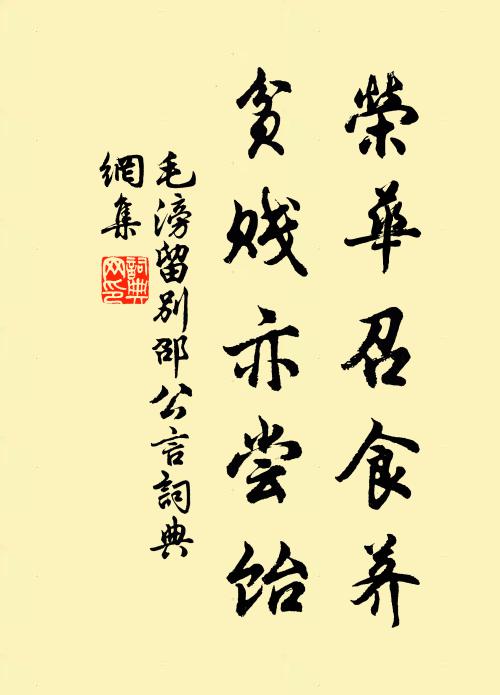 榮華召食养
贫贱亦尝饴
毛滂留别邵公言詞典
網集
詞典
网印